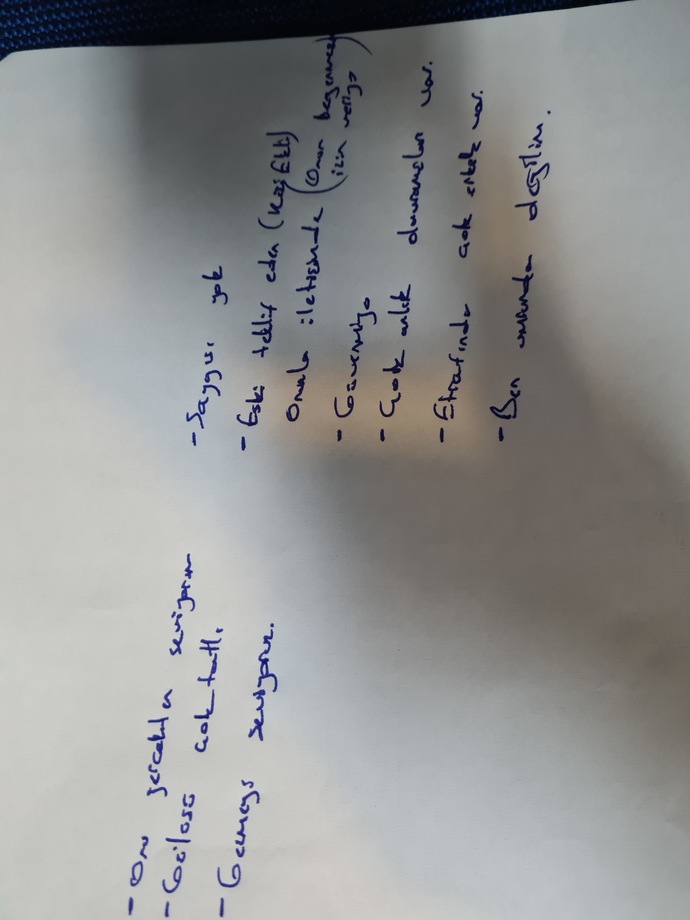 - Onu gerçekten seviyorum
- Gülüşü çok tatlı.
- Gülmeyi seviyorum.
- Saygısı yok
- Eski teklif eden (Keşfetti)
Onunla iletişimde (Onun beğenmesi
için veriyo
- Güvenmiyo
- Çok anlık davranışları var.
- Etrafında çok erkek var.
- Ben umrunda değilim.